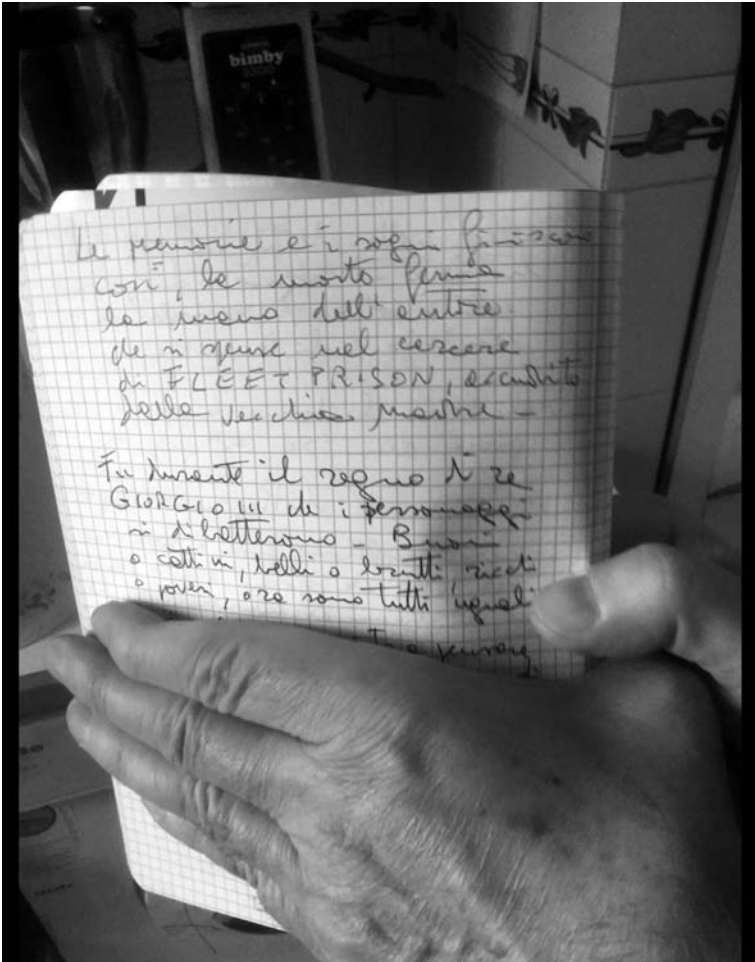 bimby
3300
Le memorie e i sogni finiscon
così, la morte ferma
la mano dell'autore
che si spense nel carcere
di FLEET PRISON, accudito
dalla vecchia madre –
Fu durante il regno di re
GIORGIO III che i personaggi
si dibatterono – Buoni
o cattivi, belli o brutti, ricchi
o poveri, ora sono tutti uguali